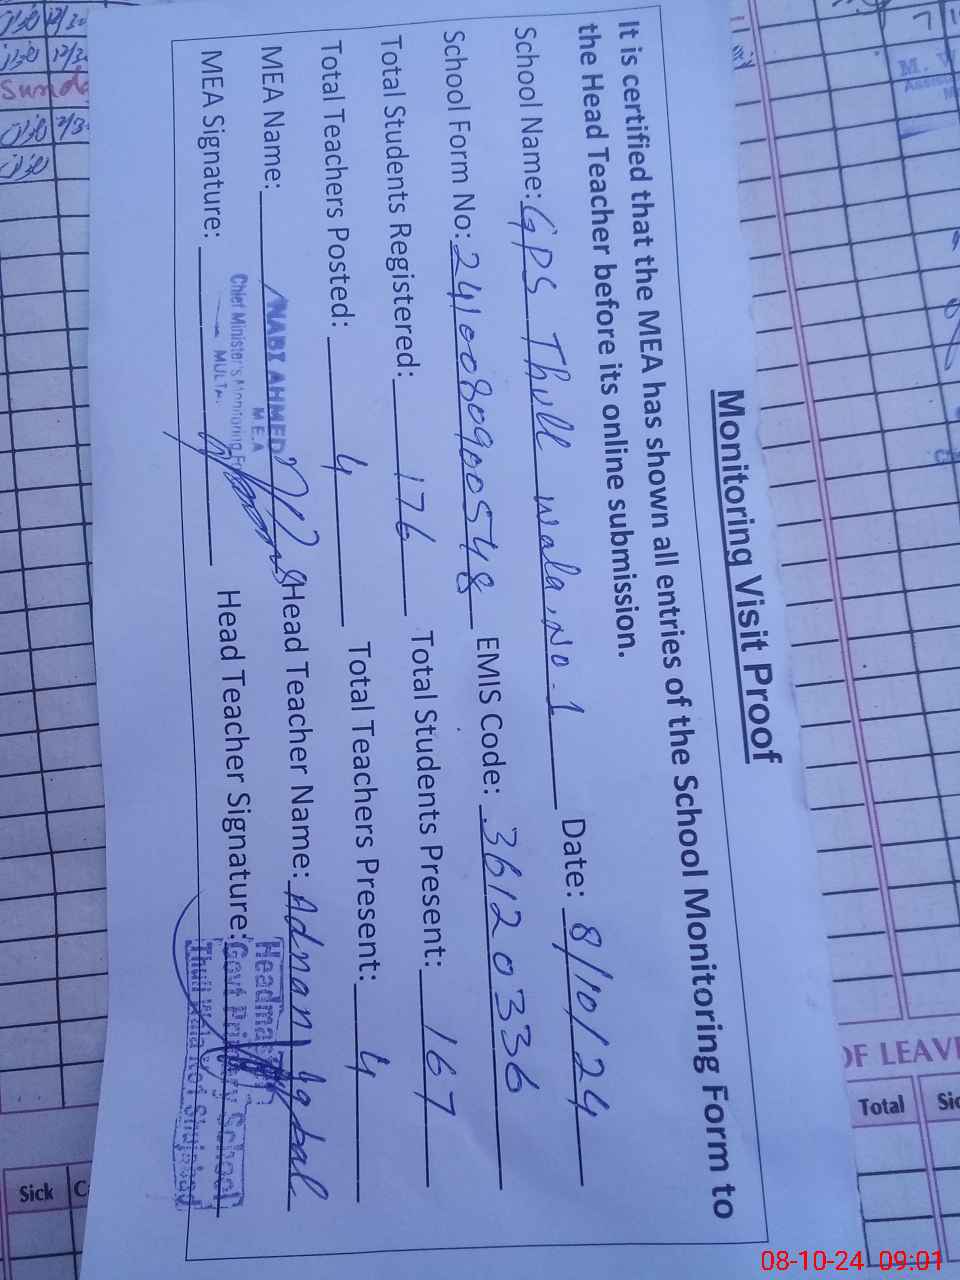 Monitoring Visit Proof
It is certified that the MEA has shown all entries of the School Monitoring Form to
the Head Teacher before its online submission.
School Name: GPS Thull wala, No. 1 Date: 8/10/24
School Form No: 2410080900548 EMIS Code: 36120336
Total Students Registered: 176 Total Students Present: 167
Total Teachers Posted: 4 Total Teachers Present: 4
MEA Name: Head Teacher Name: Adnan Iqbal
NABI AHMED
M.E.A
Chief Minister's Monitoring
MULTAN
MEA Signature: Head Teacher Signature:
Govt Primary School
Thull Wala No1 Shujabad
Sunda
M.
OF LEAVE
Total
Sick
08-10-24 09:01